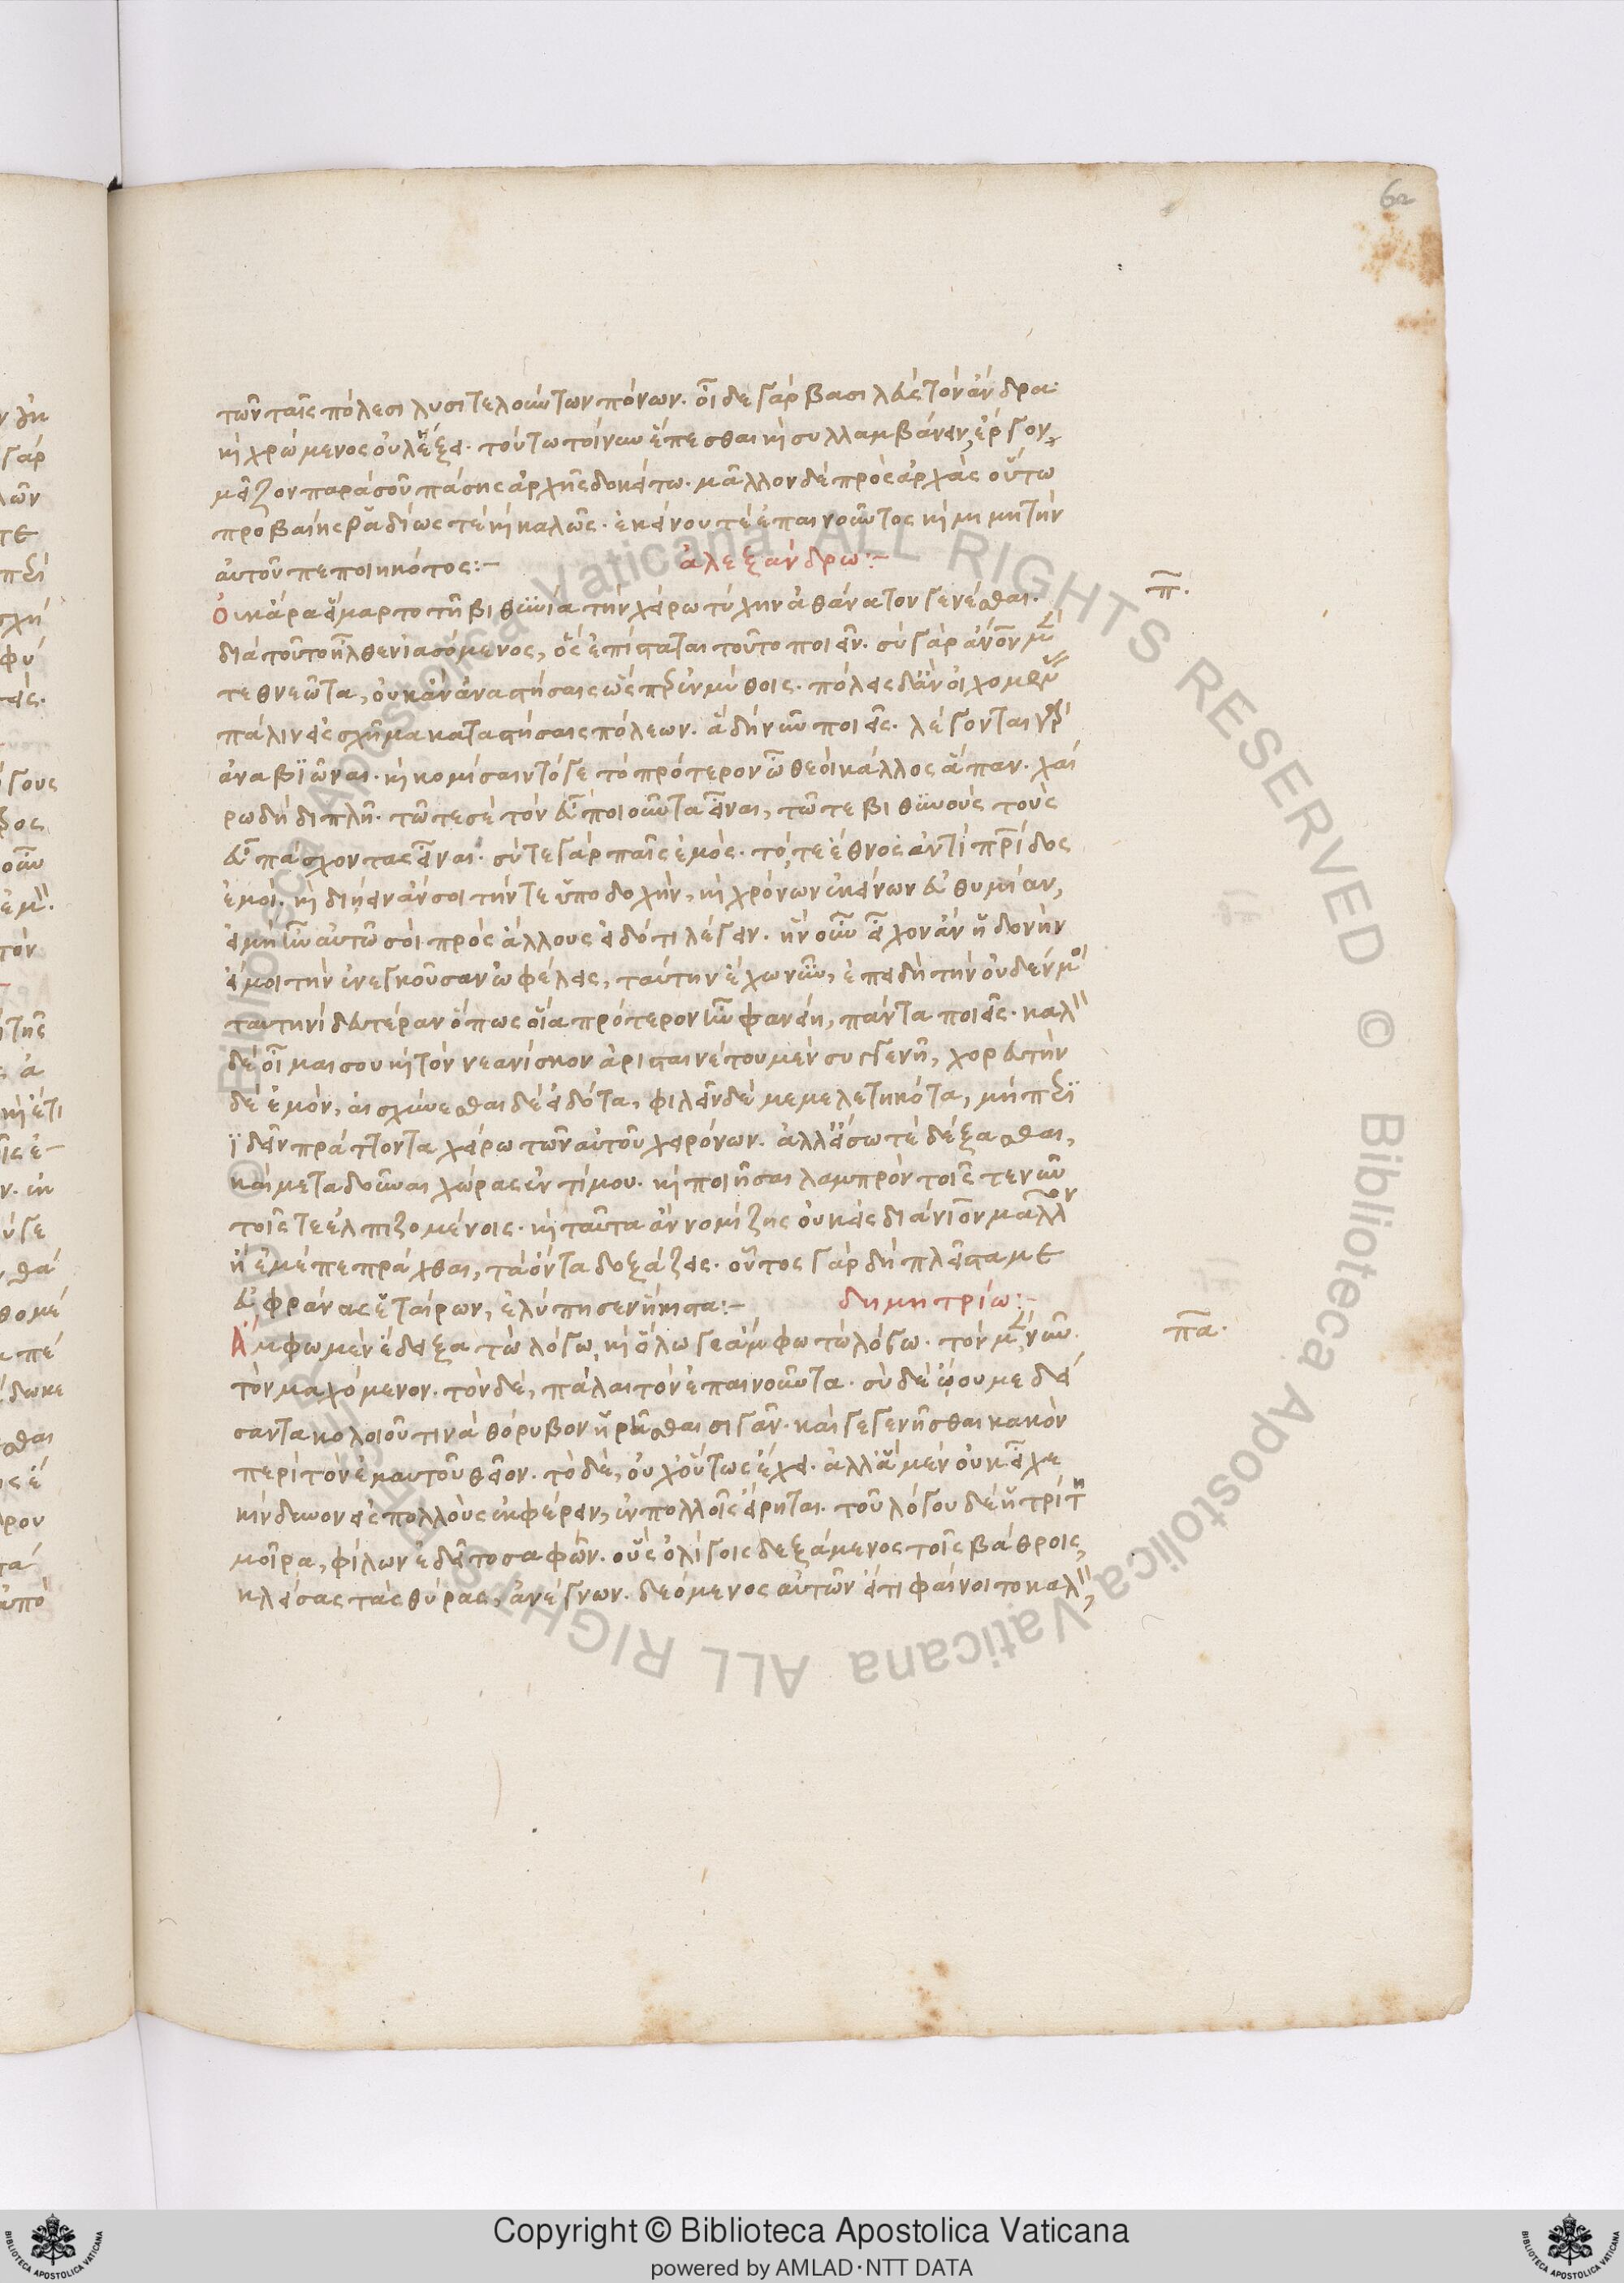 62
τῶν ταῖς πόλεσι λυσιτελούντων πόνων. οἶδε γὰρ βασιλεὺς τὸν ἄνδρα·
καὶ χρώμενος οὐ λήξει. τούτω τοίνυν ἕπεσθαι καὶ συλλαμβάνειν, ἔργον,
μεῖζον παρὰ σοῦ πάσης ἀρχῆς δοκείτω. μᾶλλον δὲ πρὸς ἀρχὰς οὕτω
προβαίης ῥαδίως τὲ καὶ καλῶς. ἐκείνου τὲ ἐπαινοῦντος καὶ μιμητὴν
αὐτοῦ πεποιηκότος:-
ἀλεξάνδρω:-
π.
Οὐκ ἄρα εἵμαρτο τῆ βιθυνία τὴν χείρω τύχην ἀθάνατον γενέσθαι.
διὰ τοῦτο ἦλθεν ἰασόμενος, ὃς ἐπίσταται τοῦτο ποιεῖν. σὺ γὰρ ἄνον μὲν
τεθνεῶτα, οὐκ ἂν ἀναστήσαις ὡς πλὴν μύθοις. πόλεις δ' ἂν οἰχομένας
πάλιν εἰς σχῆμα καταστήσαις πόλεων. ἃ δὴ νῦν ποιεῖς. λέγονται γὰρ
ἀναβιῶναι. καὶ κομίσαιντό γε τὸ πρότερον ὦ θεοὶ κάλλος ἅπαν. χαί
ρω δὴ διπλῆ. τῶ τε σὲ τὸν εὖ ποιοῦντα εἶναι, τῶ τε βιθυνοὺς τοὺς
εὖ πάσχοντας εἶναι. σύ τε γὰρ παῖς ἐμός. τό, τε ἔθνος ἀντὶ πρίδος
ἐμοί. καὶ διήειν ἄν σοι τήν τε ὑποδοχὴν, καὶ χρόνων ἐκείνων εὐθυμίαν,
εἰ μὴ ἦν αὐτῶ σοὶ πρὸς ἄλλους εἰδότι λέγειν. ἣν οὖν εἶχον ἂν ἡδονὴν
εἴ μοι τὴν ἐνεγκοῦσαν ὠφέλεις, ταύτην ἔχω νῦν, ἐπειδὴ τὴν οὐδέν μοι
ταυτηνὶ δευτέραν ὅπως οἵα πρότερον ἦν φανείη, πάντα ποιεῖς. καλ
δὲ οἶμαι σου καὶ τὸν νεανίσκον ἀρισταινέτου μὲν συγγενῆ, χορευτὴν
δὲ ἐμὸν, αἰσχύνεσθαι δὲ εἰδότα, φιλεῖν δὲ μεμελετηκότα, μὴ περι
ϊδεῖν πράττοντα χείρω τῶν αὐτοῦ χειρόνων. ἀλλ' εἴσω τὲ δέξασθαι,
καὶ μεταδοῦναι χώρας ἐντίμου. καὶ ποιῆσαι λαμπρὸν τοῖς τε νῦν
τοῖς τε ἐλπιζομένοις. καὶ ταῦτα ἂν νομίζης οὐκ εἰς διάνιον μᾶλλον
ἢ ἐμὲ πεπράχθαι, τὰ ὄντα δοξάζεις. οὗτος γὰρ δὴ πλεῖστα με
εὐφράνας ἑταίρων, ἐλύπησεν ἥκιστα:-
δημητρίω:-
πα.
Ἄμφω μὲν ἔδειξα τὼ λόγω, καὶ ὅλω γε ἄμφω τὼ λόγω. τὸν μὲν, νῦν.
τὸν μαχόμενον. τὸν δὲ, πάλαι τὸν ἐπαινοῦντα. σὺ δὲ ᾤου με δεί
σαντα κολοιοῦ τινὰ θόρυβον ἡρῆσθαι σιγᾶν. καὶ γεγενῆσθαι κακὸν
περὶ τὸν ἐμαυτοῦ θεῖον. τὸ δὲ, οὐχ οὕτως ἔχει. ἀλλ' ἃ μὲν οὐκ εἶχε
κίνδυνον εἰς πολλοὺς ἐκφέρειν, ἐν πολλοῖς εἴρηται. τοῦ λόγου δὲ ἡ τρίτη
μοῖρα, φίλων ἐδεῖτο σαφῶν. οὓς ὀλίγοις δεξάμενος τοῖς βάθροις,
κλείσας τὰς θύρας, ἀνέγνων. δεόμενος αὐτῶν εἴ τι φαίνοιτο καλ,